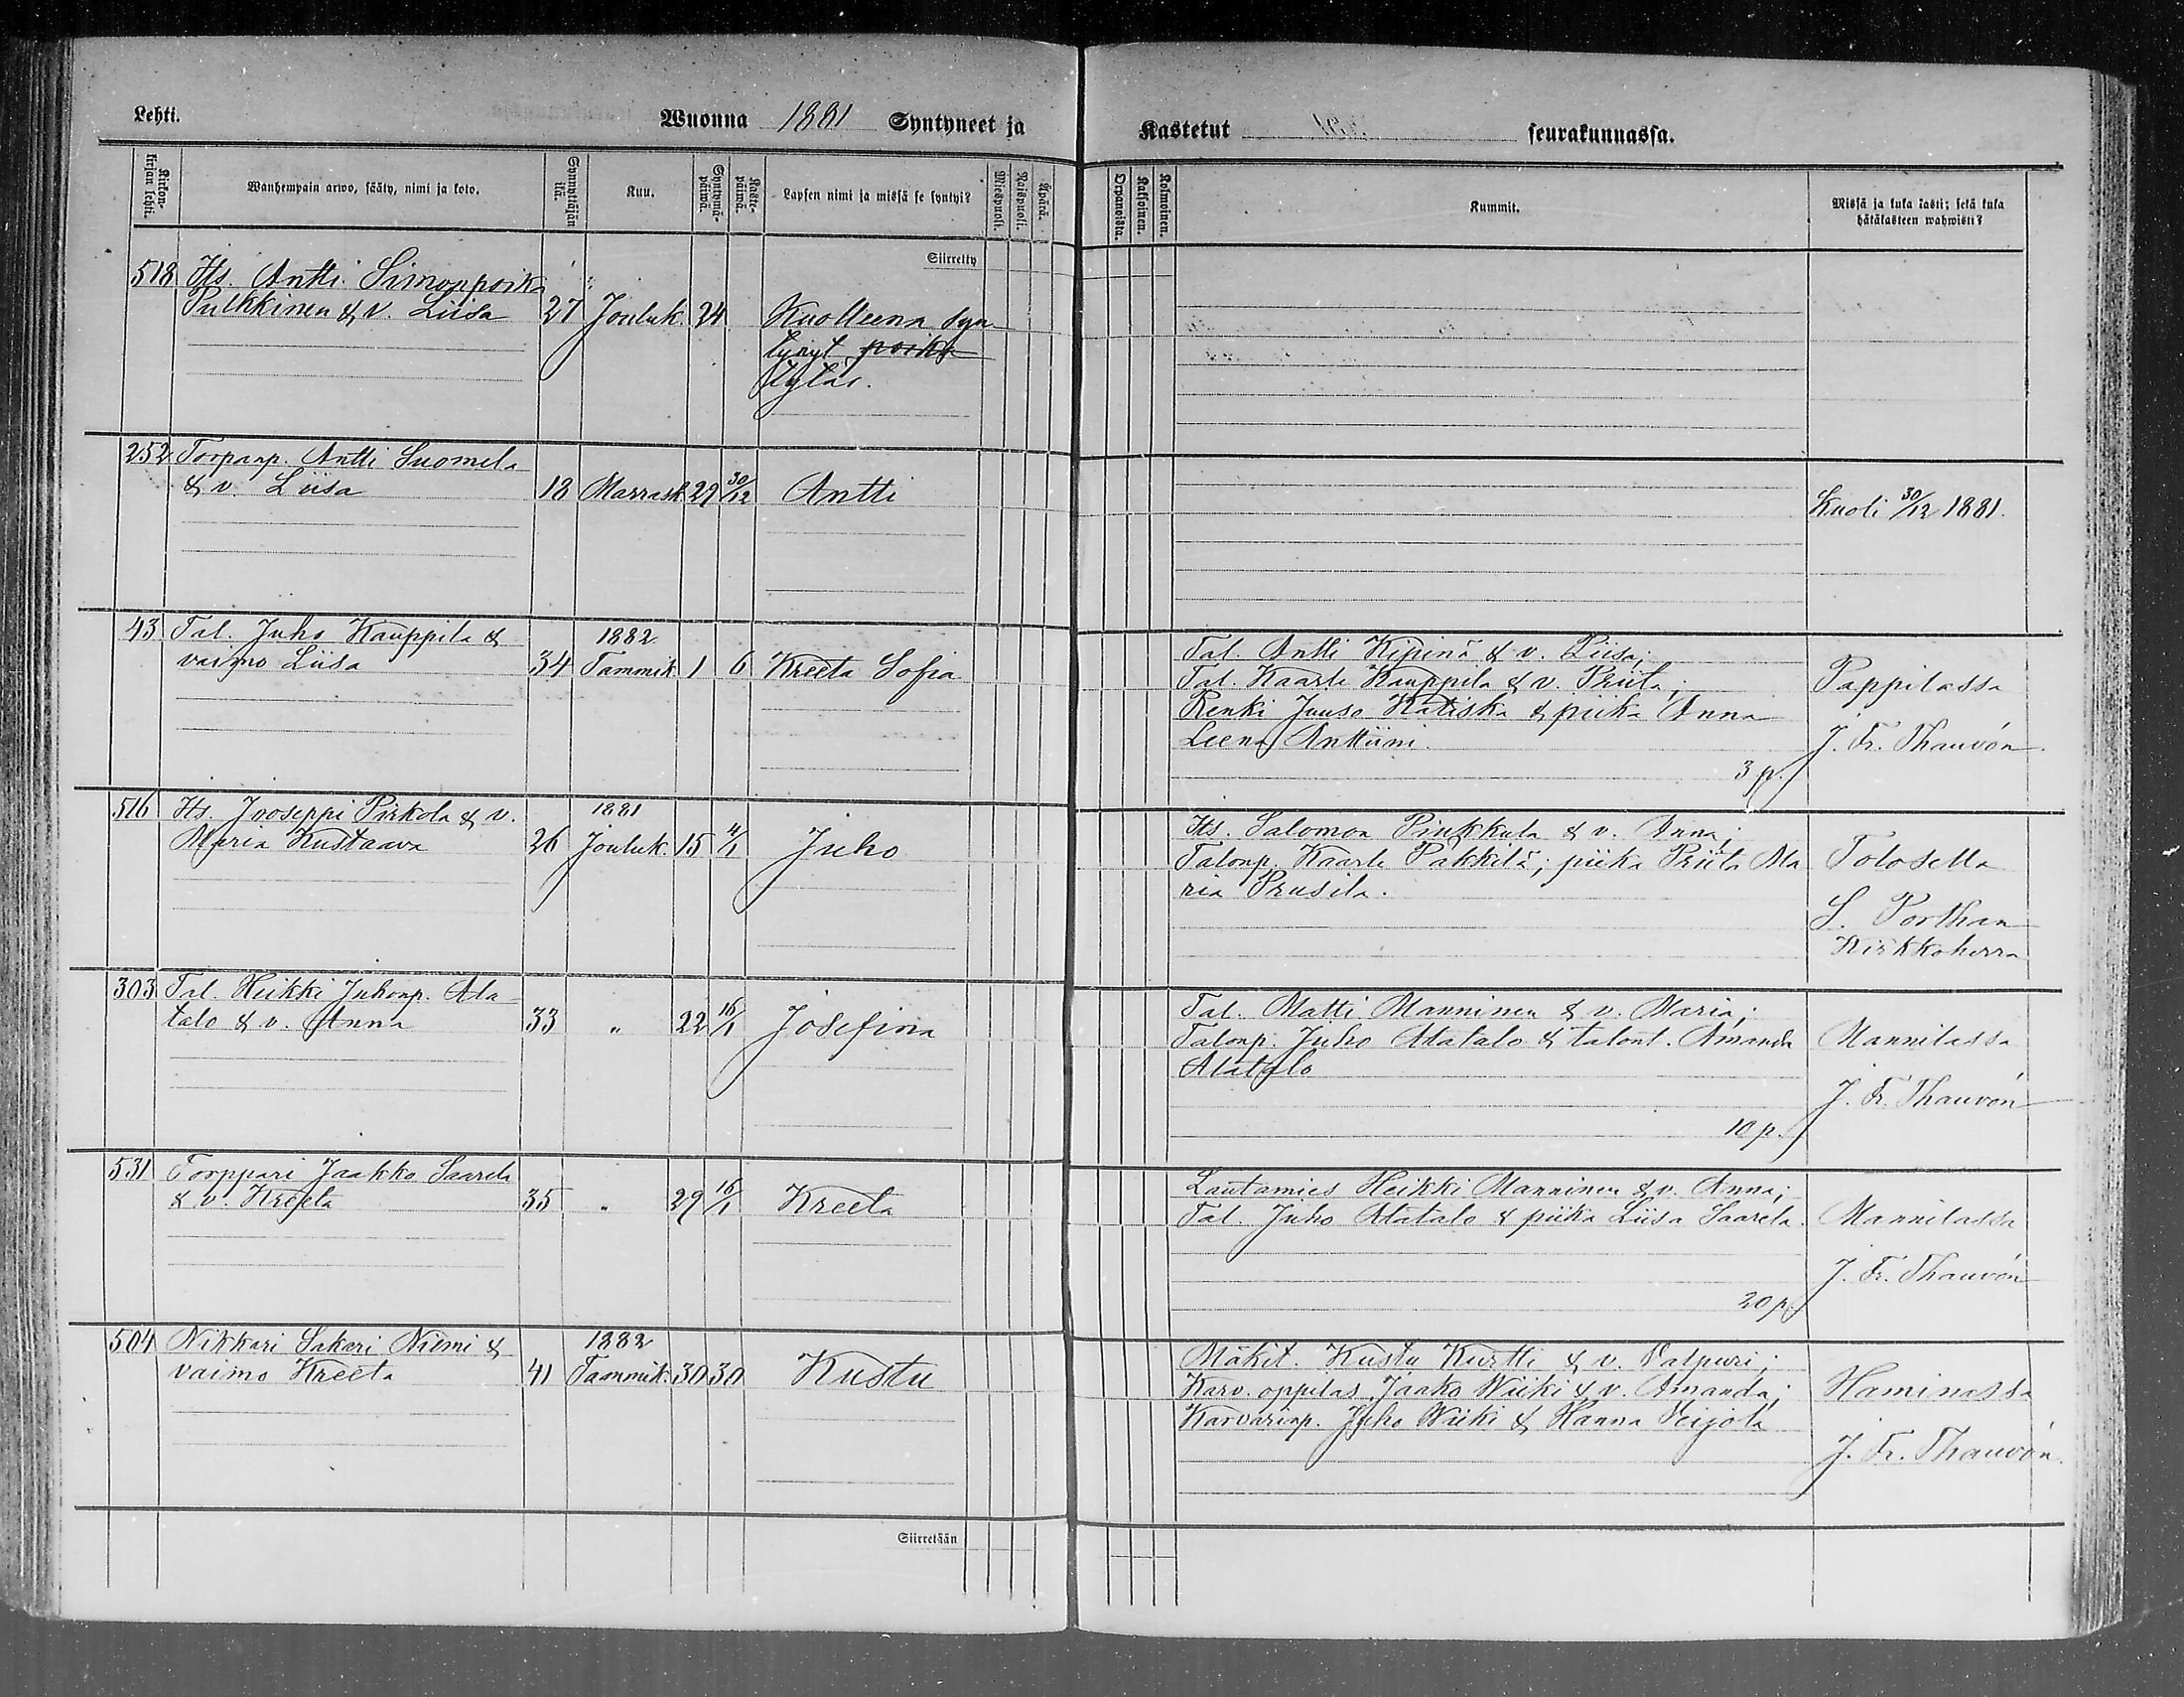 Lehti.
Wuonna 1881 Syntyneet ja
Kastetut seurakunnassa.
Kirkon-kirjan lehti.
Wanhempain arwo, sääty, nimi ja koto.
Synnyttäjän ikä.
Kuu.
Syntymä-päiwä.
Kaste-päiwä.
Lapsen nimi ja missä se syntyi?
Miespuoli.
Naispuoli.
Äpärä.
Orpanoista.
Kaksoinen.
Kolmoinen.
Kummit.
Missä ja kuka kasti; sekä kuka
hätäkasteen wahwisti?
Siirretty
518 Its. Antti Simonpoika
Pulkkinen & v. Liisa 27 Jouluk. 24 Kuolleena syn
tynyt poika
tytär.
252 Torpanp. Antti Suomela
& v. Liisa 18 Marrask. 29 30/12 Antti
Kuoli 30/12 1881.
43 Tal. Juho Kauppila &
1882
vaimo Liisa 34 Tammik 1 6 Kreeta Sofia
Tal. Antti Kipinä & v. Liisa;
Tal. Kaarle Kauppila & v. Priita;
Renki Juuso Katiska & piika Anna
Leena Anttiini.
3 p.
Pappilassa
J. Fr. Thauvón
516 Its. Jooseppi Pirkola & v.
1881
Maria Kustaava 26 Jouluk. 15 4/1 Juho
Its. Salomon Pinkkula & v. Anna;
Talonp. Kaarle Pakkila; piika Priita Ma
ria Prusila.
Tolosella
S. Porthan
Kirkkoherra
303 Tal. Heikki Juhonp. Ala
talo & v. Anna 33 " 22 16/1 Josefina
Tal. Matti Manninen & v. Maria;
Talonp. Juho Alatalo & talont. Amanda
Alatalo
10 p.
Mannilassa
J. Fr. Thauvón
531 Torppari Jaakko Saarela
& v. Kreeta 35 " 29 16/1 Kreeta
Lautamies Heikki Manninen & v. Anna;
Tal. Juho Alatalo & piika Liisa Saarela.
20 p.
Mannilassa
J. Fr. Thauvón
504 Nikkari Sakari Niemi &
1882
vaimo Kreeta 41 Tammik. 30 30 Kustu
Mäkit. Kustu Kurtti & v. Valpuri;
Karv. oppilas Jaako Wiiki & v. Amanda;
Karvarinp. Juho Wiiki & Hanna Veijola
Haminassa
J. Fr. Thauvón.
Siirretään